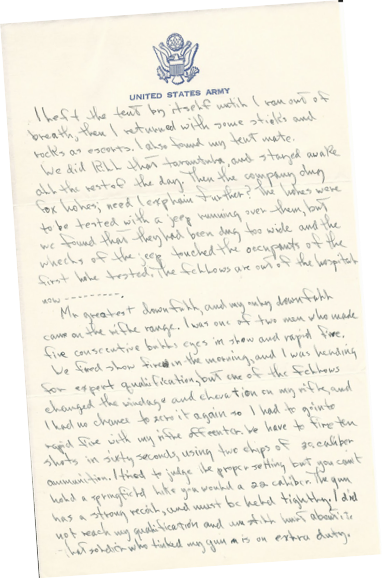 UNITED STATES ARMY
I left the tent by itself until I ran out of
breath, then I returned with some sticks and
rocks as escorts. I also found my tent mate.
We did kill that tarantula, and stayed awake
all the rest of the day. Then the company dug
fox holes; need I explain further? The holes were
to be tested with a jeep running over them, but
we found that they had been dug too wide and the
wheels of the jeep touched the occupants of the
first hole tested. The fellows are out of the hospital
now ----------.
My greatest downfall, and my only downfall
came on the rifle range. I was one of two men who made
five consecutive bulls eyes in slow and rapid fire.
We fired slow fire in the morning, and I was heading
for expert qualification, but one of the fellows
changed the windage and elevation on my rifle, and
I had no chance to zero it again so I had to go into
rapid fire with my rifle off center. We have to fire ten
shots in sixty seconds, using two clips of 22 caliber
ammunition. I tried to judge the proper setting but you can't
hold a springfield like you would a 22 caliber. The gun
has a strong recoil, and must be held tightly. I did
not reach my qualification and am still hurt about it
- that soldier who tinked my gun is on extra duty.